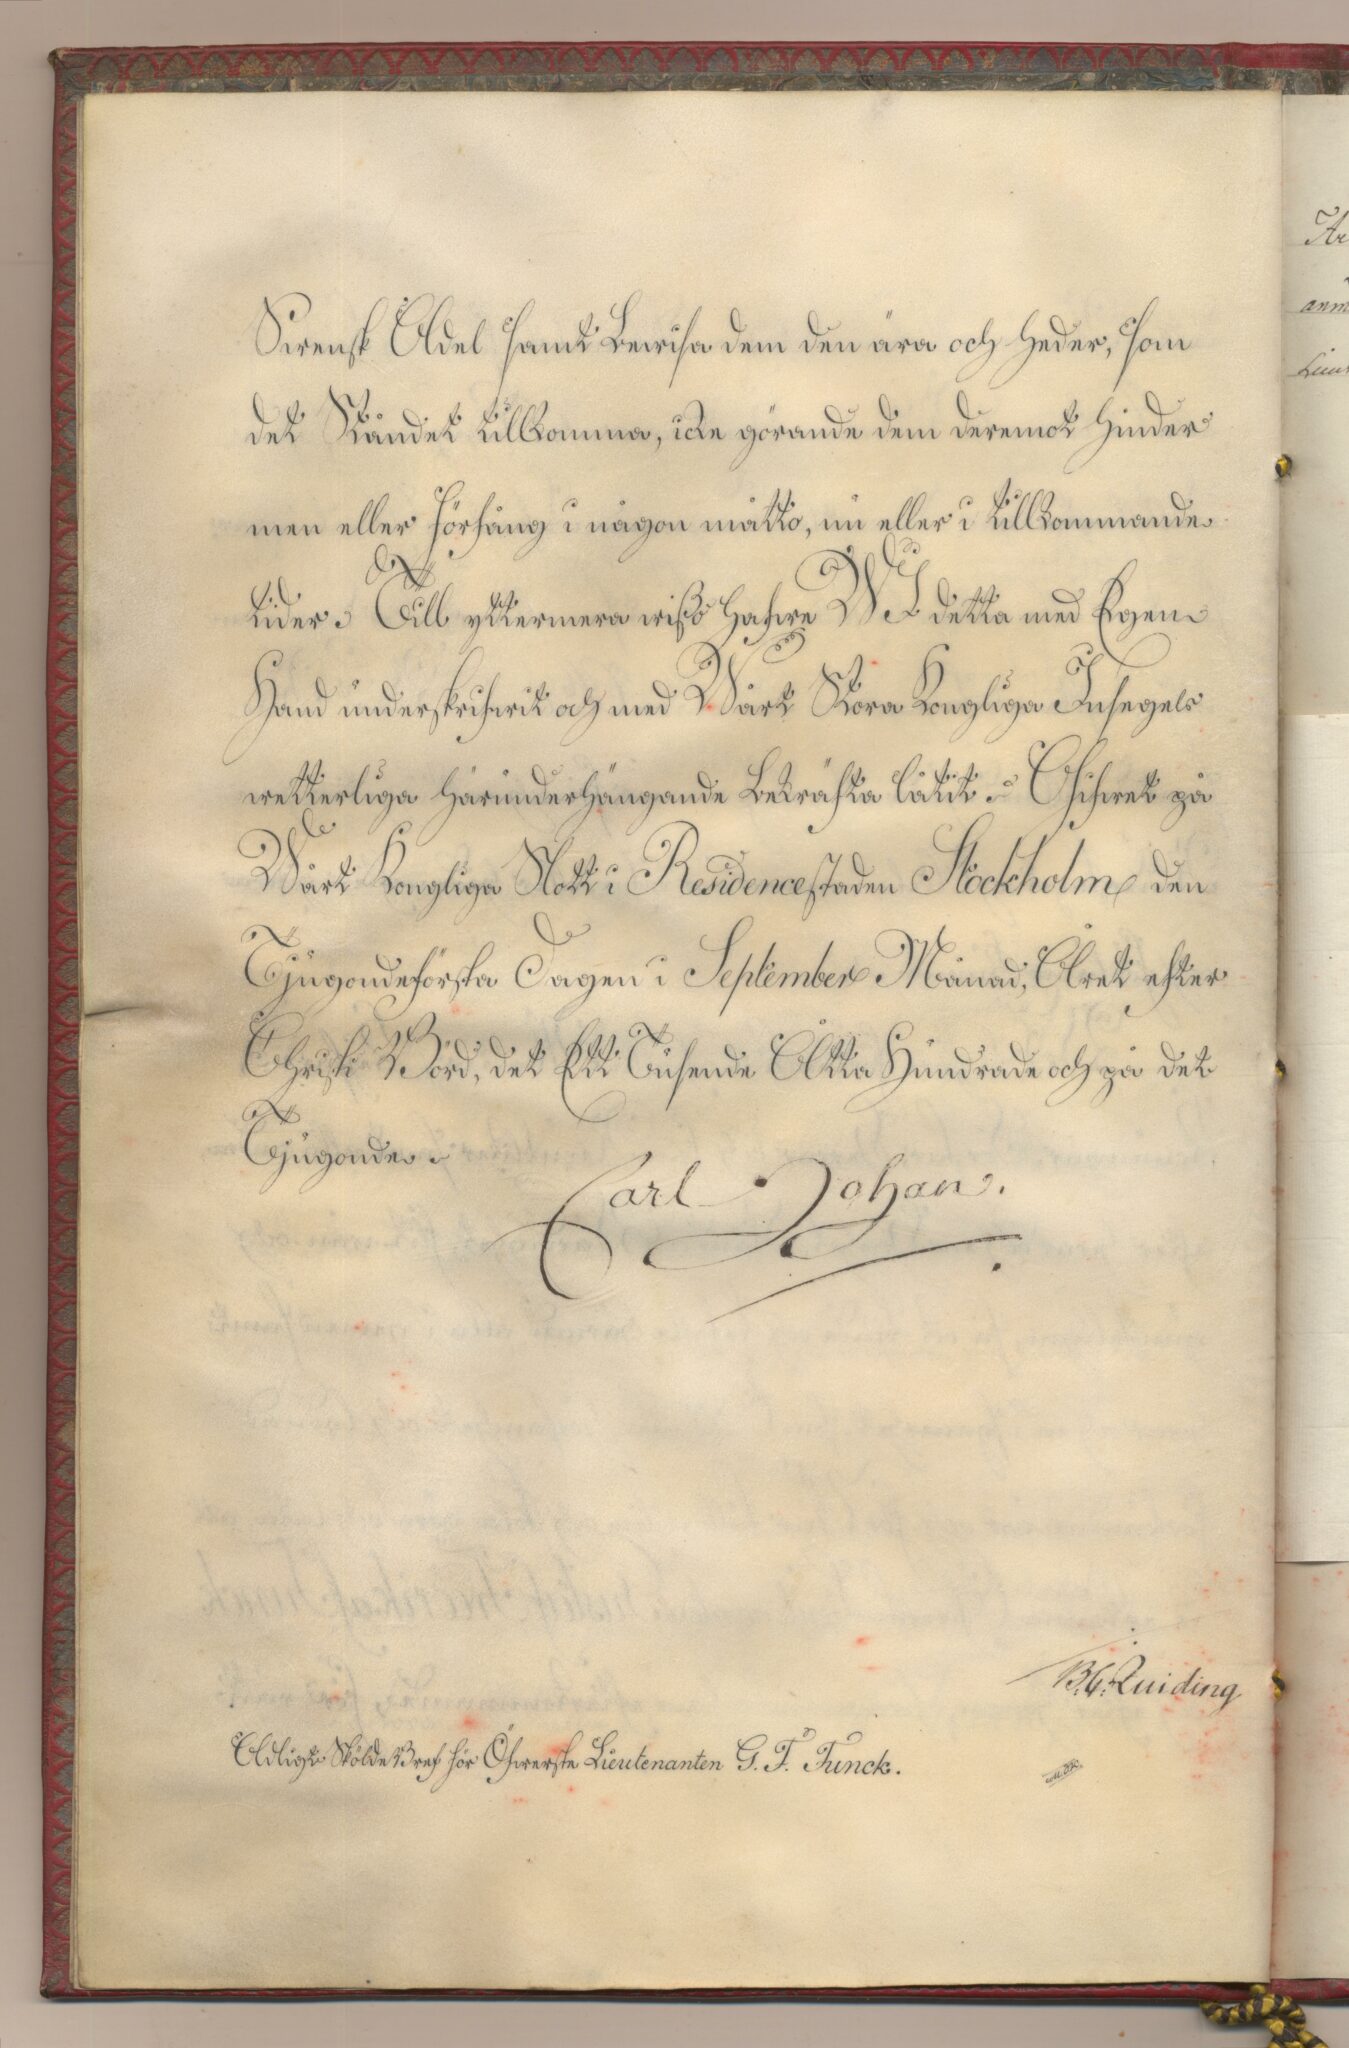 Swensk Adel samt bewisa dem den ära och heder, som
det Ståndet tillkomma, icke görande dem deremot hinder
men eller förfång i någon måtto, nu eller i tillkommande
tider. Till yttermera wisso hafwe WJ detta med Egen
Hand underskrifwit och med Wårt Stora Kongliga Insegels
wetterliga härunderhängande bekräfta låtit. Gifwet på
Wårt Kongliga Slott i Residencestaden Stockholm den
Tjugondeförsta Dagen i September Månad, Året efter
Christi Börd, det Ett Tusende Åtta Hundrade och på det
Tjugonde.
Carl Johan.
Quiding
Adligt Sköldebref för Öfwerste Lieutenanten G. F. Funck.